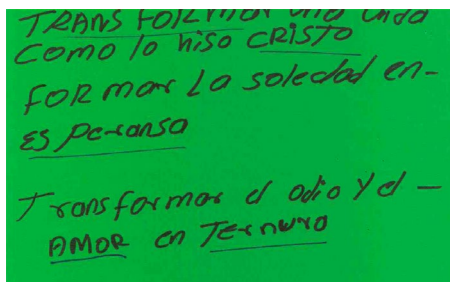 TRANSFORMAR una vida
como lo hiso CRISTO
FORMAR La soledad en-
ES peransa
Transformar el odio Y el -
AMOR en Ternura